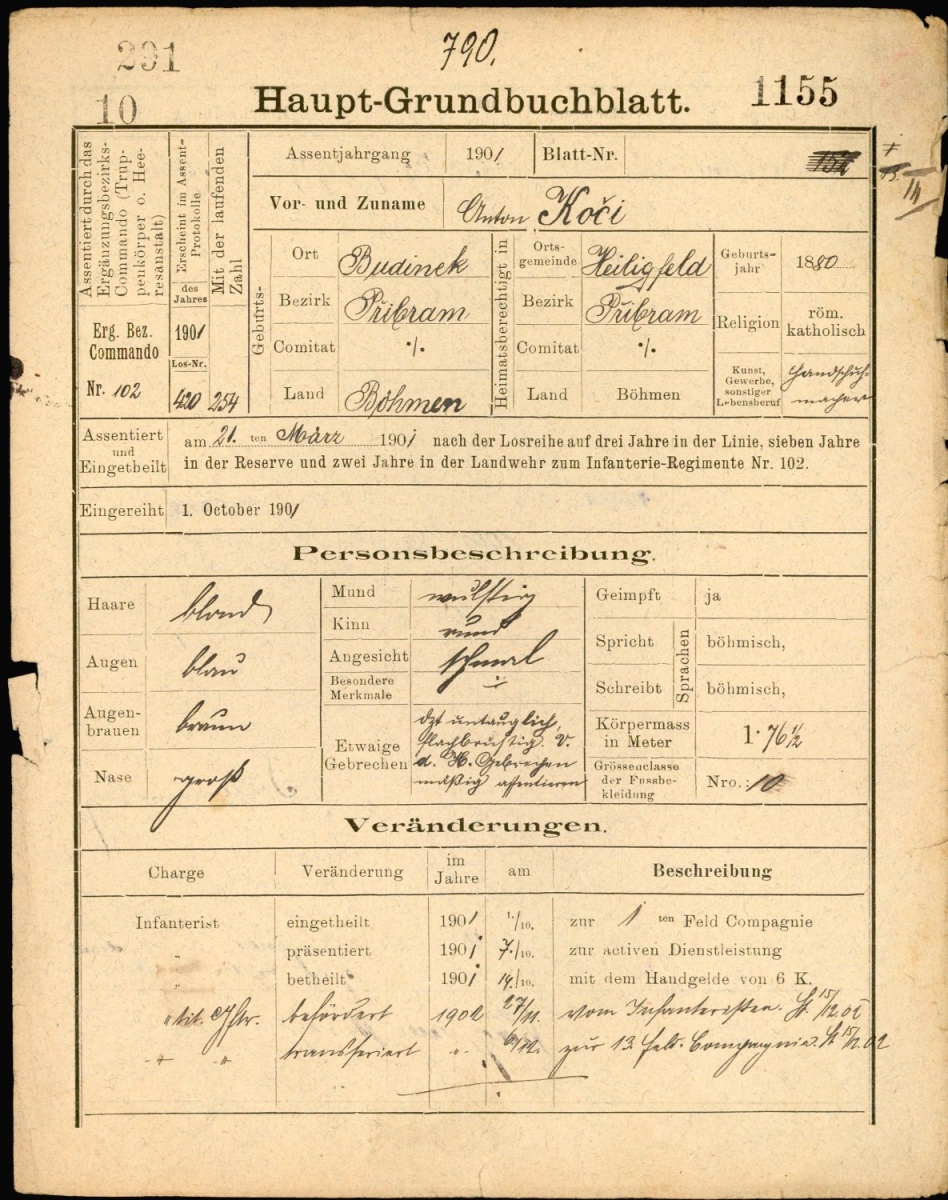 291
790.
10
Haupt-Grundbuchblatt.
1155
Assentiert durch das
Ergänzungsbezirks-
Commando (Trup-
penkörper o. Hee-
resanstalt)
Erg. Bez.
Commando
Nr. 102
Erscheint im Assent-
Protokolle
des
Jahres
1901
Los-Nr.
420
Mit der laufenden
Zahl
254
Assentjahrgang 1901 Blatt-Nr. 152
Vor- und Zuname Anton Koči
Geburts-
Ort Budinek
Bezirk Přibram
Comitat ·/.
Land Böhmen
Heimatsberechtigt in
Orts-
gemeinde Heiligfeld
Bezirk Přibram
Comitat ·/.
Land Böhmen
Geburts-
jahr 1880
Religion röm.
katholisch
Kunst,
Gewerbe,
sonstiger
Lebensberuf
Handschuh-
macher
Assentiert
und
Eingetheilt
am 21. ten März 1901 nach der Losreihe auf drei Jahre in der Linie, sieben Jahre
in der Reserve und zwei Jahre in der Landwehr zum Infanterie-Regimente Nr. 102.
Eingereiht 1. October 1901
Personsbeschreibung.
Haare blond
Augen blau
Augen-
brauen braun
Nase groß
Mund wulstig
Kinn rund
Angesicht schmal
Besondere
Merkmale ·/.
Etwaige
Gebrechen
dzt untauglich,
flachbrustig. V.
d. H. Gebrechen
mäßig assentieren
Geimpft ja
Sprachen
Spricht böhmisch,
Schreibt böhmisch,
Körpermass
in Meter 1·76 1/2
Grössenclasse
der Fussbe-
kleidung Nro.: 10
Veränderungen.
Charge Veränderung im
Jahre am Beschreibung
Infanterist eingetheilt 1901 1./10. zur 1 ten Feld Compagnie
„ präsentiert 1901 7./10. zur activen Dienstleistung
„ betheilt 1901 14./10. mit dem Handgelde von 6 K.
„ tit. Gftr. befördert 1902 27/11. vom Infanteristen. 15/12.02
„ „ transferiert „ 6/12. zur 13. Feld. Compagnie. 15/12.02